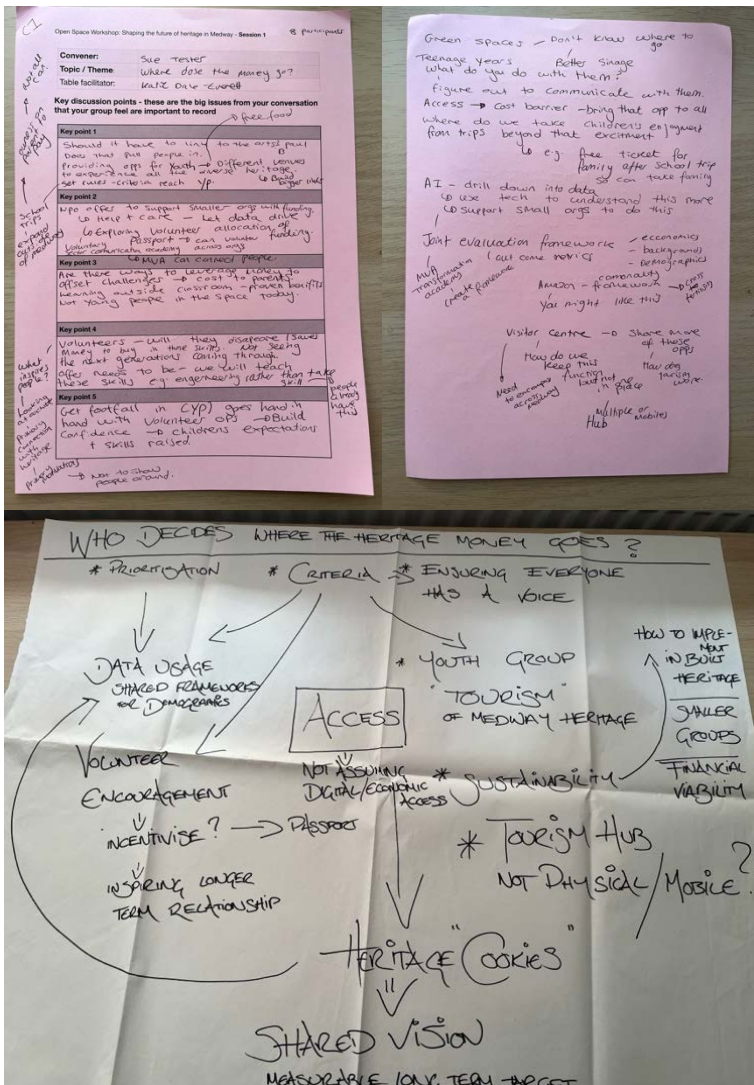 C1
Open Space Workshop: Shaping the future of heritage in Medway - Session 1
8 participants
Convener: Sue Tester
Topic / Theme Where dose the money go?
Table facilitator: Katie Dare-Everett
Key discussion points - these are the big issues from your conversation
that your group feel are important to record
→ free food
Key point 1
Should it have to link to the arts?
Does that pull people in.
Providing opps for Youth → Different venues
to experience all the diverse heritage.
set rules - criteria reach yp.
↳ Build
bigger links
Key point 2
NPO offer to support smaller orgs with funding.
↳ Help + care - Let data drive
↳ Exploring volunteer allocation of funding.
Voluntary
Passport → can volunteer
across orgs
Key point 3
↳ MVA can connect people.
Are there ways to leverage money to
offset challenges - cost to parents.
Learning outside classroom - proven benefits
Not Young people in the space today.
Key point 4
Volunteers - will they disappear / saves
money to buy in those skills. Not seeing
the next generations coming through.
Offer needs to be - we will teach
these skills e.g. engeneering rather than take
skill
people
already
have
this
Key point 5
Get footfall in (YP) goes hand in
hand with volunteer ops → Build
Confidence → childrens expectations
+ skills raised.
→ Not to show
people around.
Not all
can
onus on
parent to
pay
School
trips
expand
out side
of medway
What
inspires
people?
Looking
at
Primary
connection
with
heritage
Green spaces - Don't know where to
go
Better Sinage
Teenage years
What do you do with them?
figure out to communicate with them.
Access → Cost barrier - bring that opp to all
where do we take children's enjoyment
from trips beyond that excitment
↳ e.g. free ticket for
family after school trip
so can take family
AI - drill down into data
↳ use tech to understand this more
↳ Support small orgs to do this
Joint evaluation framework
/ out come metrics
- ecconomics
- backgrounds
- Demographics
MVA
Transformation
academy
create a framework
comonality
Amazon - framework
→ cross
fertising
You might like this
Visitor centre → Share more
of these
opps
How do we
keep this
function
but not one
in place
How dog
tourism
work.
Need
to encompass
across
medway
Multiple or
Mobiles
Hub
WHO DECIDES WHERE THE HERITAGE MONEY GOES?
* PRIORITISATION * CRITERIA ⇒ * ENSURING EVERYONE
HAS A VOICE
DATA USAGE
SHARED FRAMEWORKS
FOR DEMOGRAPHICS
* YOUTH GROUP
"TOURISM"
OF MEDWAY HERITAGE
HOW TO IMPLE-
MENT
IN BUILT
HERITAGE
SMALLER
GROUPS
FINANCIAL
VIABILITY
ACCESS
NOT ASSUMING
DIGITAL/ECONOMIC
ACCESS
* SUSTAINABILITY
VOLUNTEER
ENCOURAGEMENT
INCENTIVISE? → PASSPORT
INSPIRING LONGER
TERM RELATIONSHIP
* TOURISM HUB
NOT PHYSICAL/MOBILE?
HERITAGE "COOKIES"
SHARED VISION
MEASURABLE LONG TERM TARGET